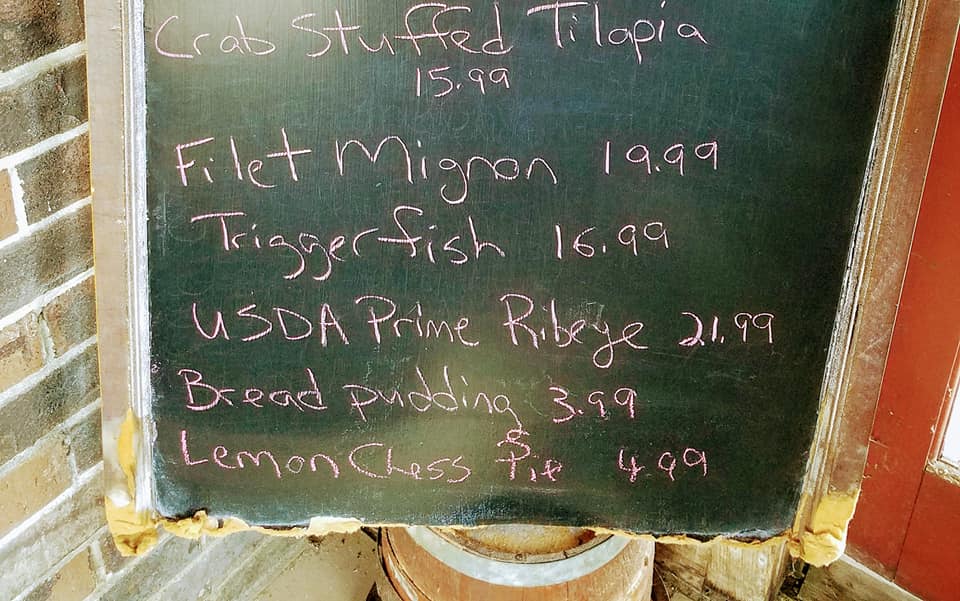 Crab Stuffed Tilapia
15.99
Filet Mignon 19.99
Triggerfish 16.99
USDA Prime Ribeye 21.99
Bread pudding 3.99
Lemon Chess Pie 4.99